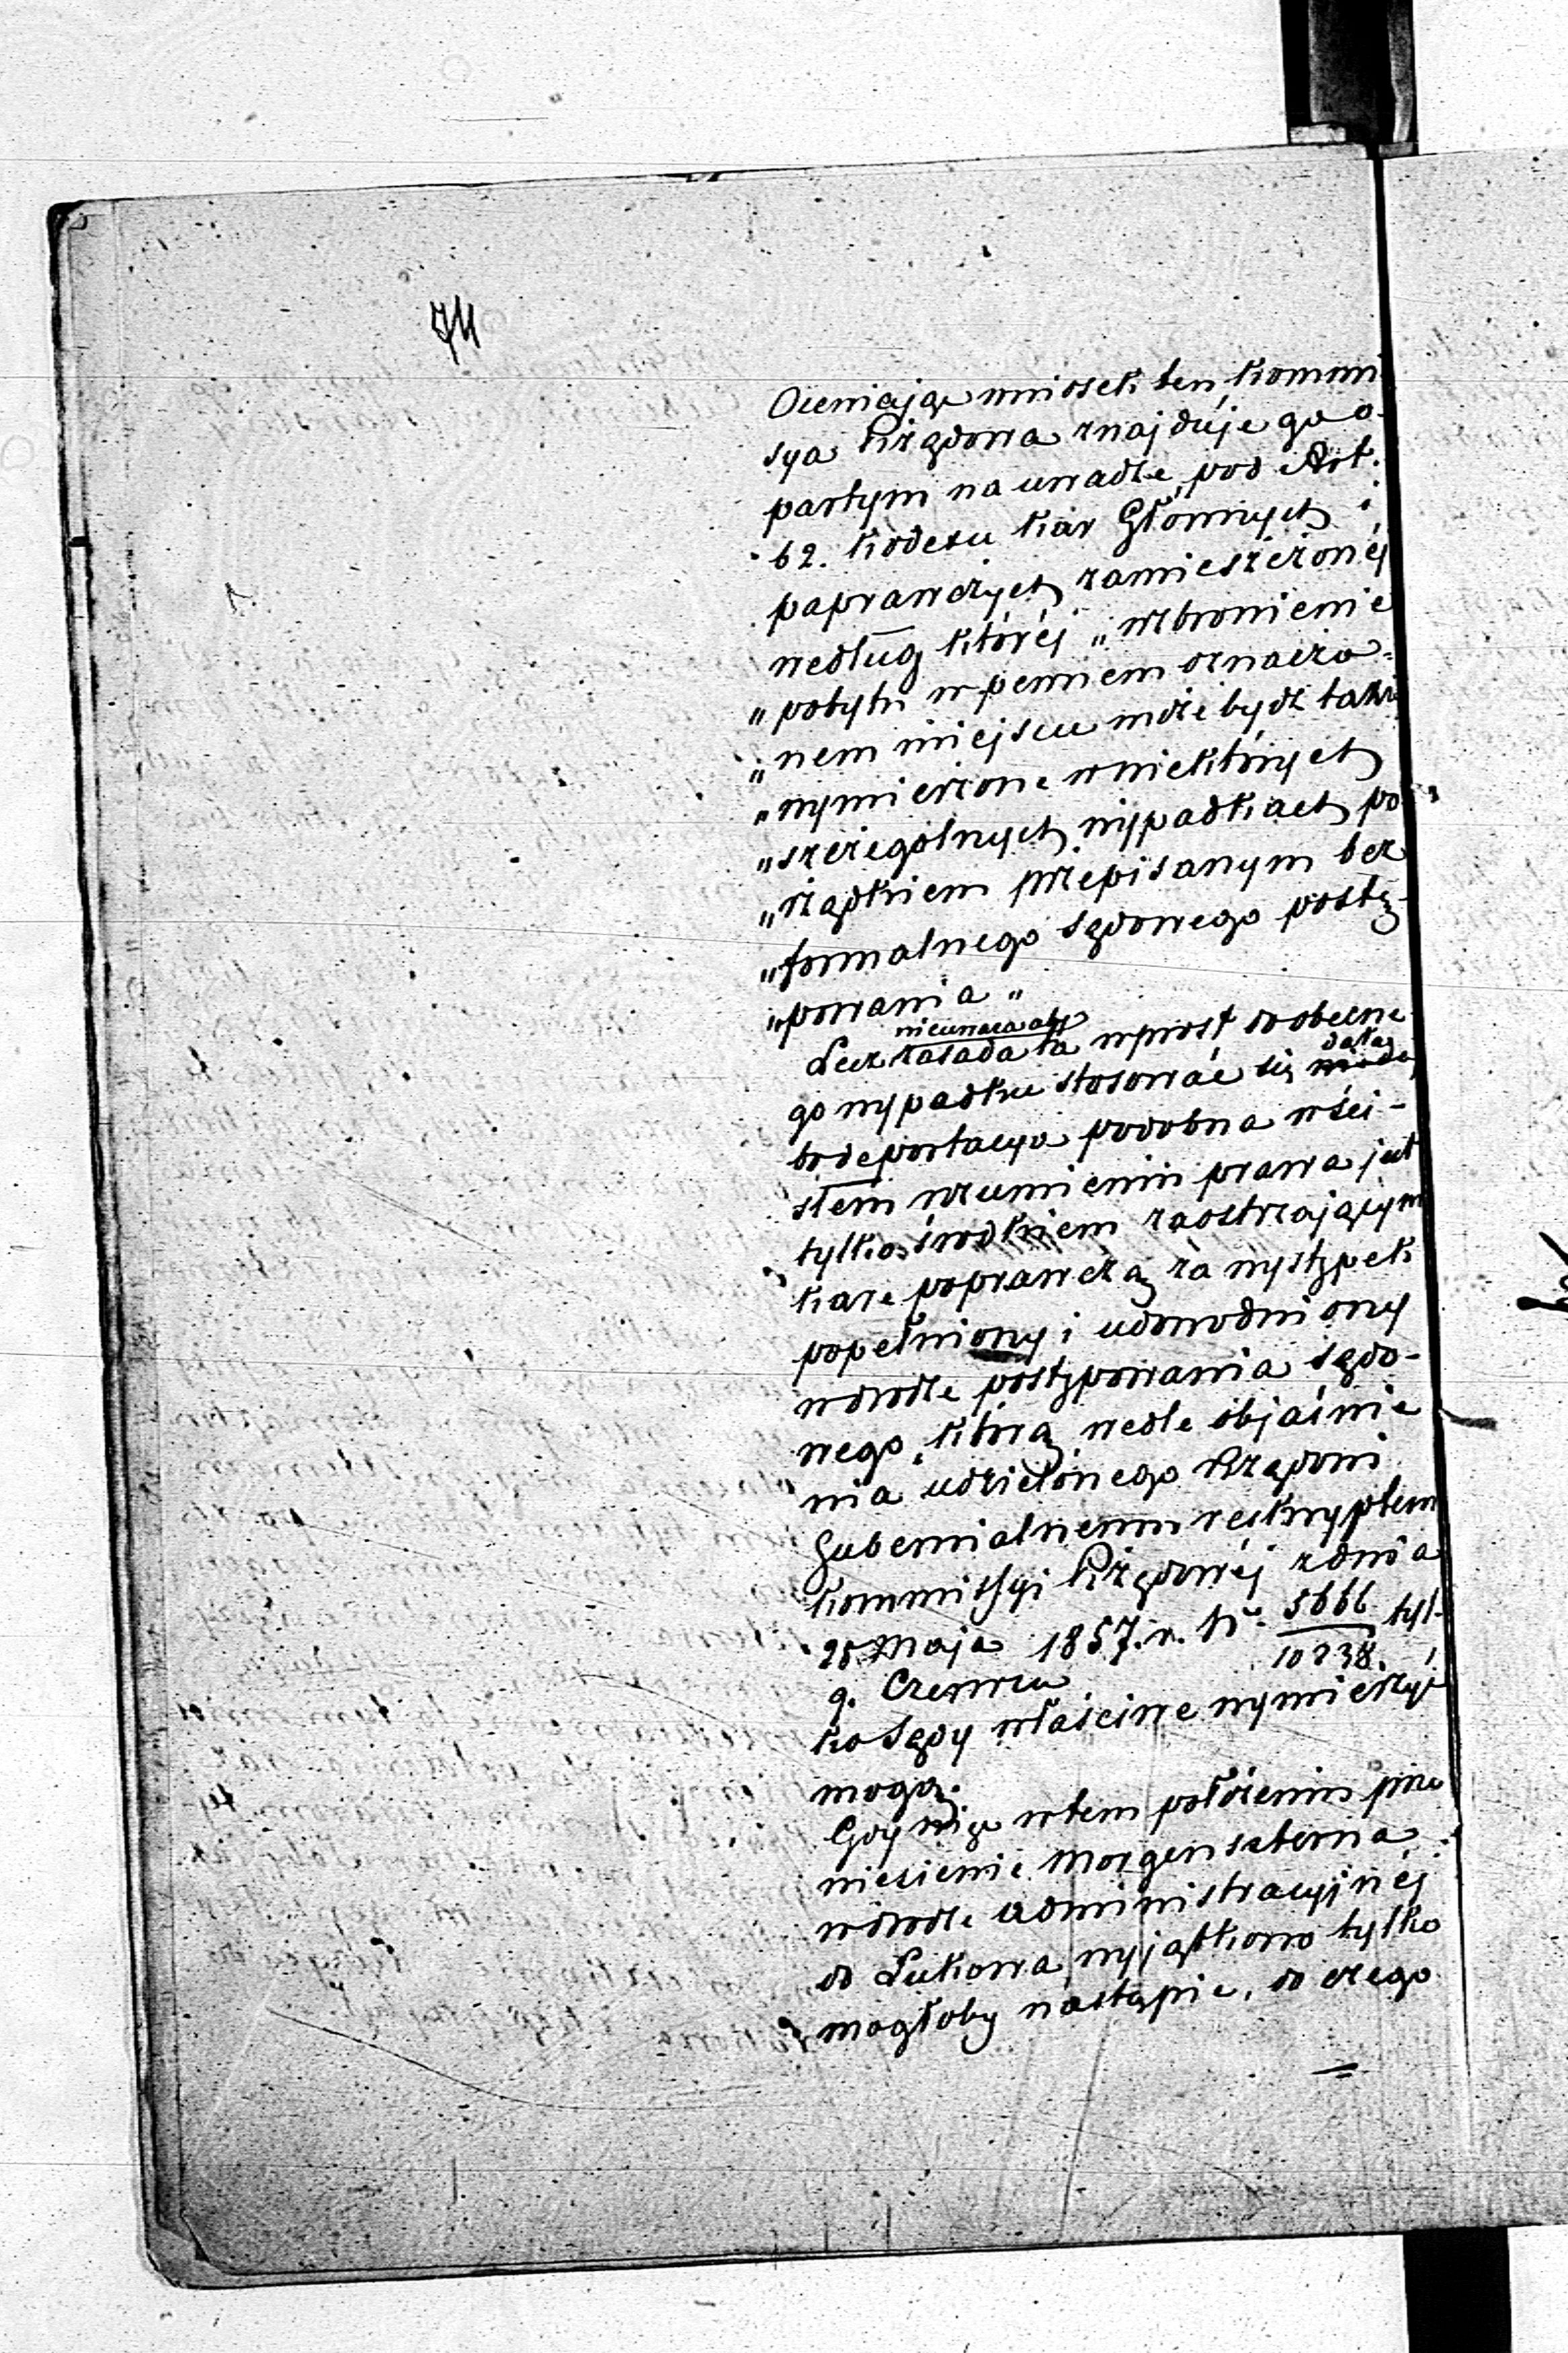 Oceniając wniosek ten, Kommi
sya Rządowa znajduje go o-
partym na uwadze, pod Art.
62. Kodexu Kar Głównych i
paprawczych zamieszczonéj
według któréj „wzbronienie
„pobytu w pewnem oznaczo-
„nem miejscu może bydź także
„wymierzone w niektórych
„szczególnych wypadkach po-
„rządkiem przepisanym bez
„formalnego sądowego postę-
„powania„
nieuważa aby
Lecz zasada ta wprost do obecne-
go wypadku stosować się dała
bo deportacya podobna w ści-
słem rozumieniu prawa jest
tylko środkiem zaostrzającym
karę poprawczą za występek
popełniony i udowodniony
w drodze postępowania sądo-
wego, którą wedle objaśnie
nia udzielonego Rządowi
Gubernialnemu reskryptem
Kommissyi Rządowéj z dnia
28 Maja 1857. r. Nr. 5666 tyl-
9. Czerwca 10238.
ko Sądy właściwe wymierzyć
mogą.
Gdy więc w tem położeniu prze
niesienie Morgensterna
w drodze administracyjnéj
do Łukowa, wyjątkowo tylko
mogłoby nastąpić, do czego